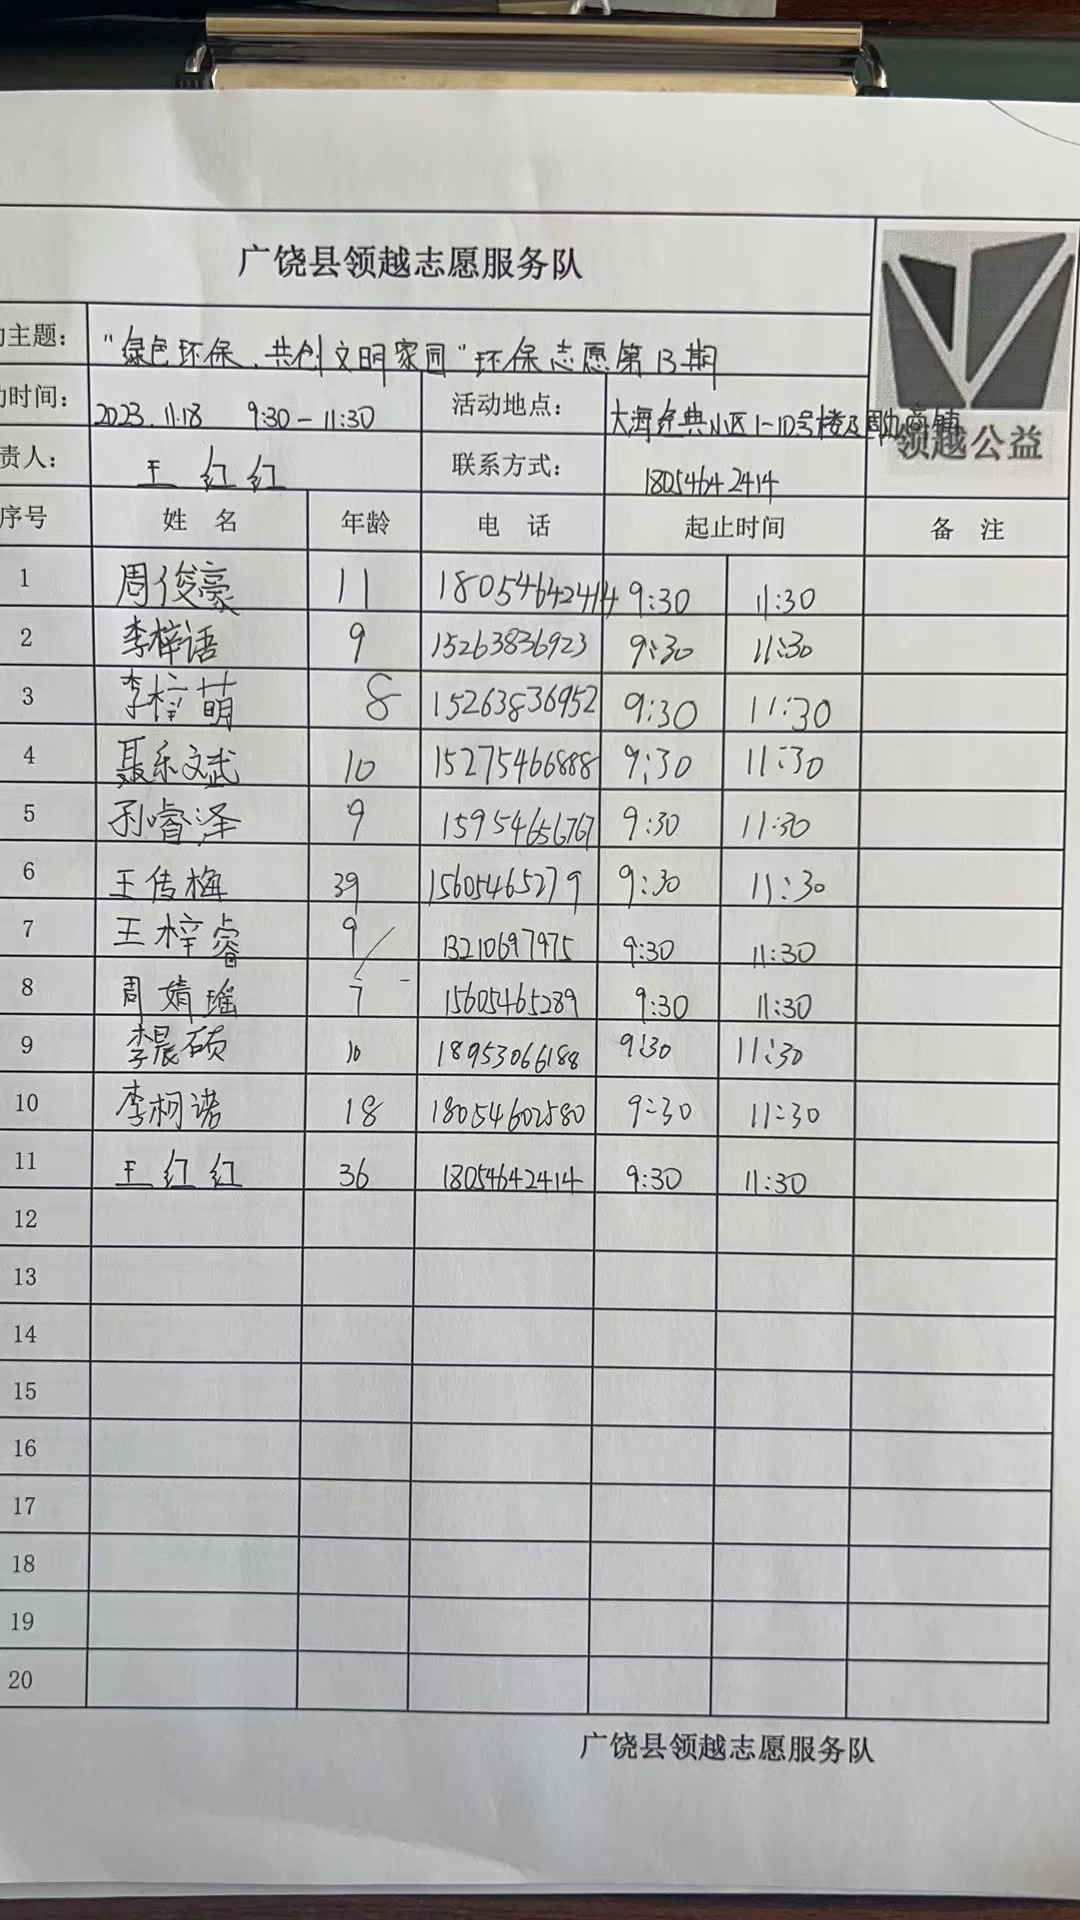 广饶县领越志愿服务队
动主题： "绿色环保、共创文明家园"环保志愿第13期
动时间： 2023.11.18 9:30-11:30 活动地点： 大海经典小区1-10号楼及周边商铺
领越公益
责人： 王红红 联系方式： 18054642414
序号 姓 名 年龄 电 话 起止时间 备 注
1 周俊豪 11 18054642414 9:30 11:30
2 李梓语 9 15263836923 9:30 11:30
3 李梓萌 8 15263836952 9:30 11:30
4 聂乐文斌 10 15275466888 9:30 11:30
5 孙睿泽 9 15954656767 9:30 11:30
6 王传梅 39 15605465279 9:30 11:30
7 王梓睿 9 13210697975 9:30 11:30
8 周婧瑶 7 15605465289 9:30 11:30
9 李晨硕 10 18953066188 9:30 11:30
10 李柯诺 18 18054602580 9:30 11:30
11 王红红 36 18054642414 9:30 11:30
12
13
14
15
16
17
18
19
20
广饶县领越志愿服务队